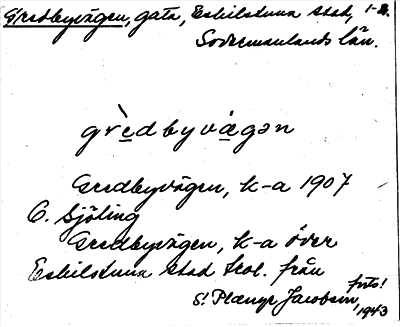 Gredbyvägen, gata, Eskilstuna stad, 1-2.
Södermanlands län.
grèdbyvägən
Gredbyvägen, k-a 1907
C. Sjöling
Gredbyvägen, k-a över
Eskilstuna stad från
foto!
Jacobson, 1943